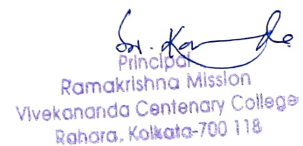 Principal
Ramakrishna Mission
Vivekananda Centenary College
Rahara, Kolkata-700 118